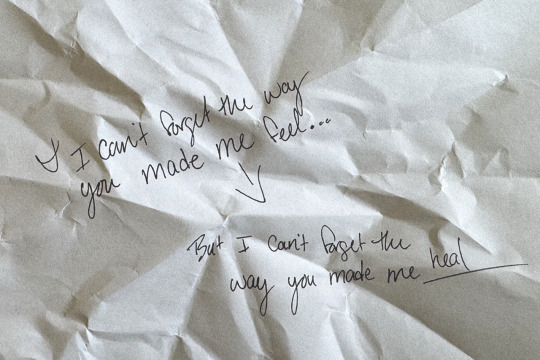 I can't forget the way
you made me feel...
But I can't forget the
way you made me heal